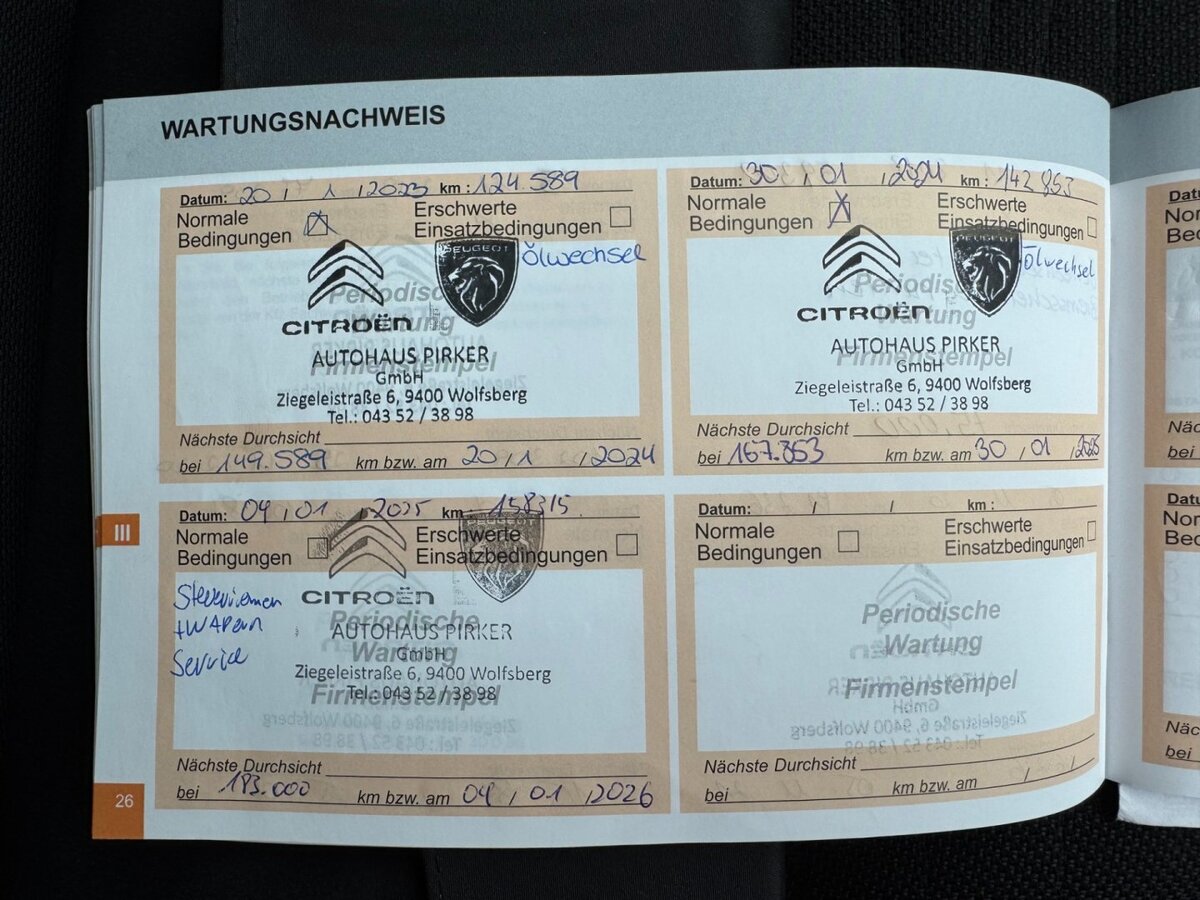 WARTUNGSNACHWEIS
Datum: 20 / 1 / 2023 km : 124.589
Normale Bedingungen
Erschwerte Einsatzbedingungen
PEUGEOT
Ölwechsel
Periodische
Wartung
CITROËN
AUTOHAUS PIRKER
Firmenstempel
GmbH
Ziegeleistraße 6, 9400 Wolfsberg
Tel.: 043 52 / 38 98
Nächste Durchsicht
bei 149.589 km bzw. am 20 / 1 / 2024
Datum: 30 / 01 / 2024 km : 142 853
Normale Bedingungen
Erschwerte Einsatzbedingungen
PEUGEOT
Ölwechsel
Periodische
Wartung
CITROËN
AUTOHAUS PIRKER
Firmenstempel
GmbH
Ziegeleistraße 6, 9400 Wolfsberg
Tel.: 043 52 / 38 98
Nächste Durchsicht
bei 167.853 km bzw. am 30 / 01 / 2025
III
Datum: 04 / 01 / 2025 km : 158315
Normale Bedingungen
Erschwerte Einsatzbedingungen
Service
CITROËN
Periodische
AUTOHAUS PIRKER
Wartung
GmbH
Ziegeleistraße 6, 9400 Wolfsberg
Firmenstempel
Tel.: 043 52 / 38 98
Nächste Durchsicht
bei 183.000 km bzw. am 04 / 01 / 2026
Datum: / / km :
Normale Bedingungen
Erschwerte Einsatzbedingungen
Periodische
Wartung
Firmenstempel
Nächste Durchsicht
bei km bzw. am / /
26